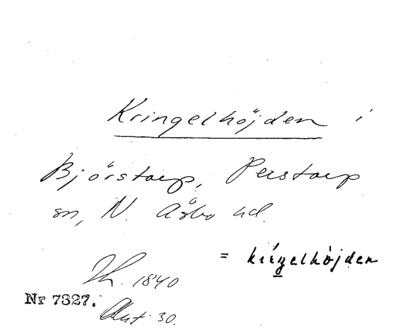 Kringelhöjden i
Björstorp, Perstorp
sn, N. Åsbo hd.
= kringelhöjden
1840
Nr 7327.
Akt 30.